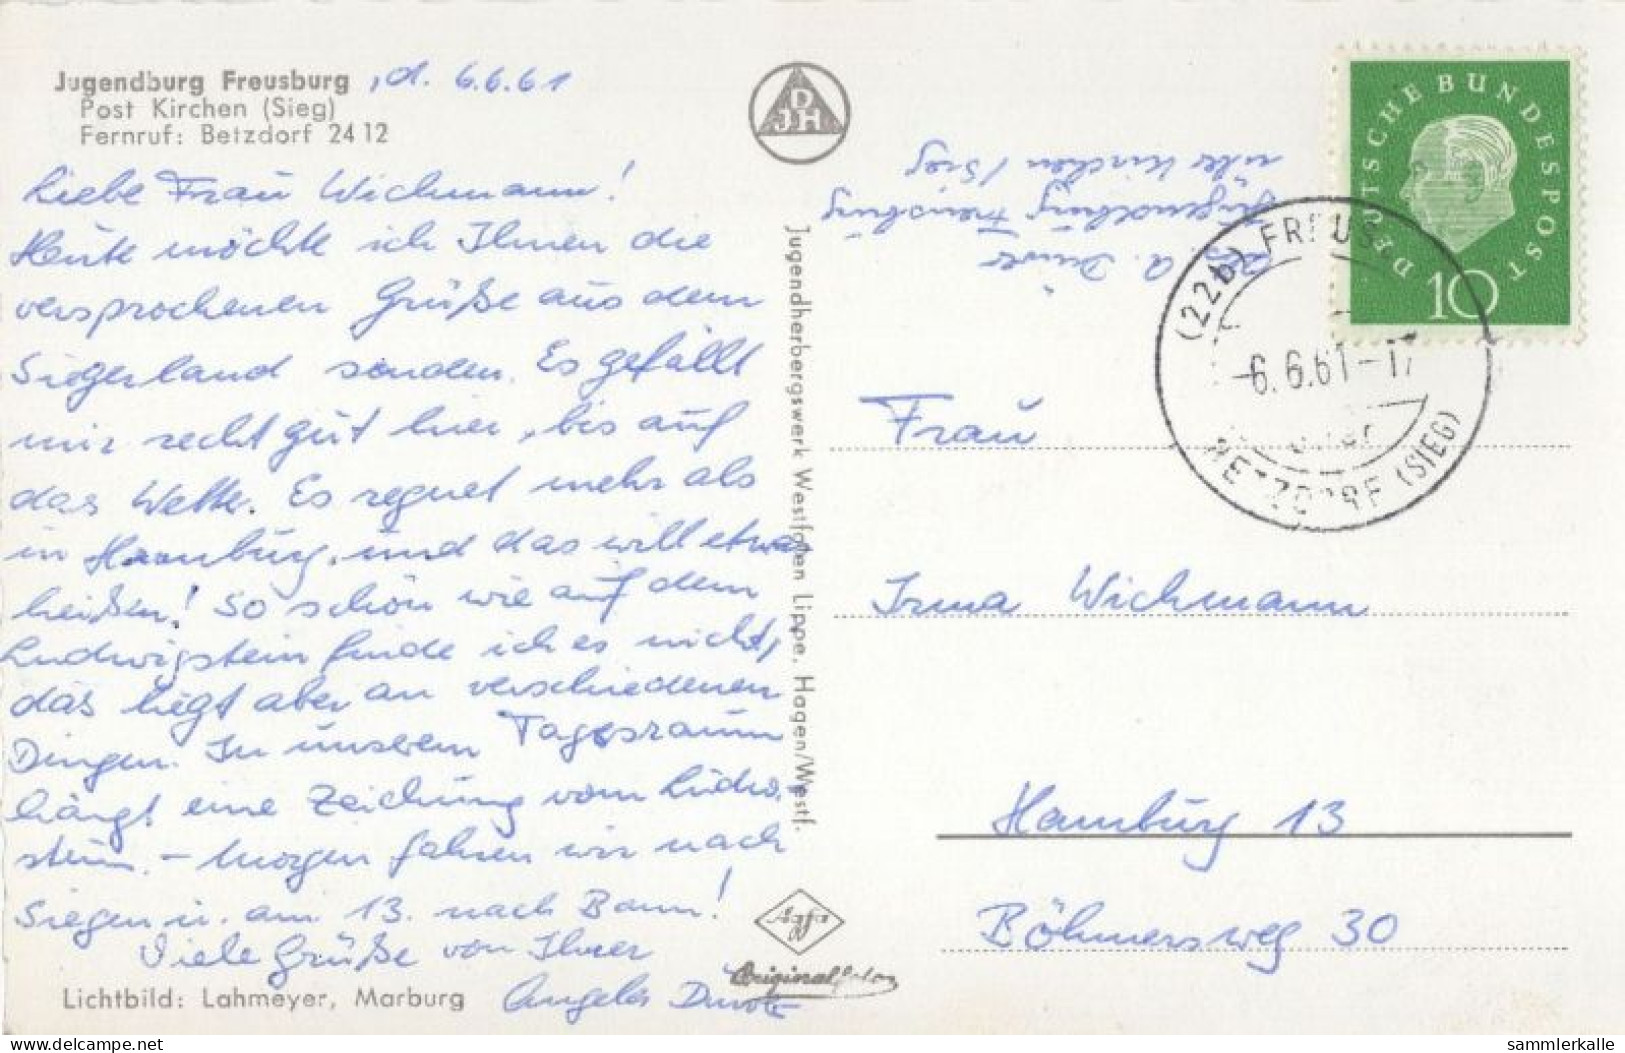 Jugendburg Freusburg, d. 6.6.61
Post Kirchen (Sieg)
Fernruf: Betzdorf 2412
Liebe Frau Wichmann!
Heute möchte ich Ihnen die
versprochenen Grüße aus dem
Siegerland senden. Es gefällt
mir recht gut hier, bis auf
das Wetter. Es regnet mehr als
in Hamburg, und das will etwas
heißen! So schön wie auf dem
Ludwigstein finde ich es nicht,
das liegt aber an verschiedenen
Dingen. In unserem Tagesraum
hängt eine Zeichnung vom Ludw.
stein. – Morgen fahren wir nach
Siegen u. am 13. nach Bonn!
Viele Grüße von Ihrer
Angela
Lichtbild: Lahmeyer, Marburg
DJH
Jugendherbergswerk Westfalen Lippe, Hagen/Westf.
Agfa
Originalfoto
A.
Jugendburg Freusburg
über Kirchen / Sieg
DEUTSCHE BUNDESPOST
10
(22b) FREUS
-6.6.61-17
über
BETZDORF (SIEG)
Frau
Irma Wichmann
Hamburg 13
Böhmersweg 30
www.delcampe.net
sammlerkalle